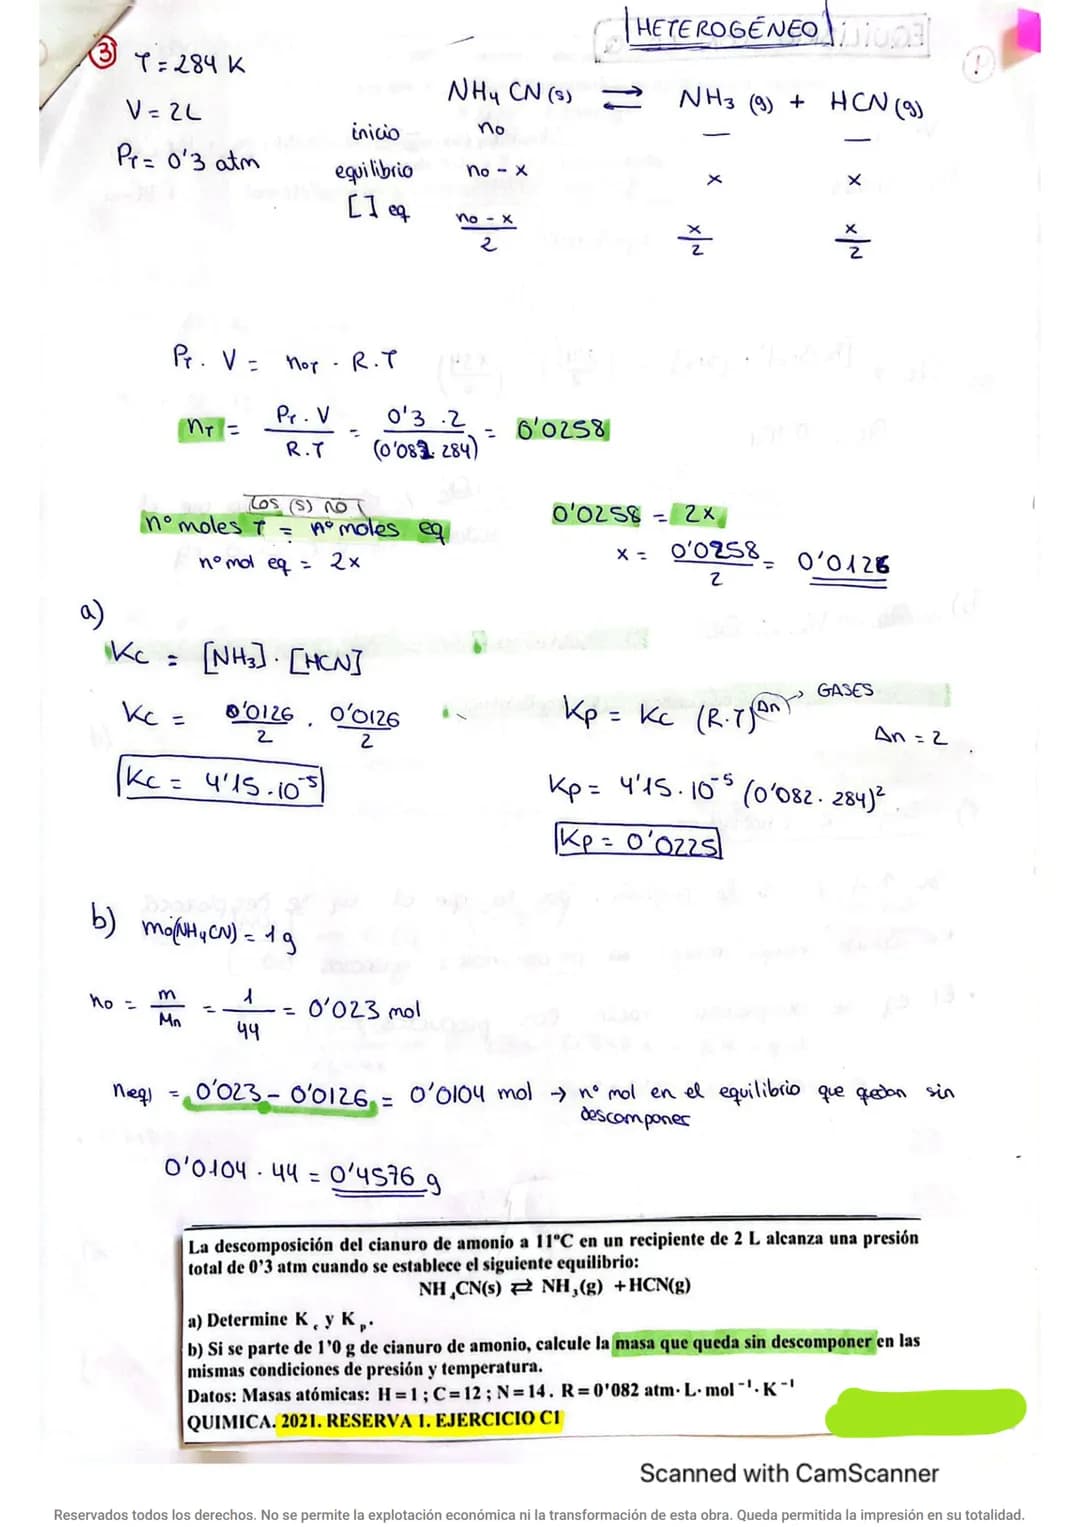 HETEROGÉNEO
!
③ T = 284 K
V = 2L
PT = 0'3 atm
NH4 CN (s) ⇄ NH3 (g) + HCN (g)
inicio no — —
equilibrio no - x x x
[ ] eq no - x / 2 x / 2 x / 2
PT . V = noT . R.T
nT = PT . V / R.T = 0'3 . 2 / (0'082 . 284) = 0'0258
Los (s) no
nº moles T = nº moles eq
nº mol eq = 2x
0'0258 = 2x
x = 0'0258 / 2 = 0'0126
a)
Kc = [NH3] . [HCN]
Kc = 0'0126 / 2 . 0'0126 / 2
Kc = 4'15 . 10⁻⁵
Kp = Kc (R.T)^Δn → GASES
Δn = 2
Kp = 4'15 . 10⁻⁵ (0'082 . 284)²
Kp = 0'0225
b) mo(NH4CN) = 1g
no = m / Mn = 1 / 44 = 0'023 mol
neq) = 0'023 - 0'0126 = 0'0104 mol → nº mol en el equilibrio que quedan sin
descomponer
0'0104 . 44 = 0'4576 g
La descomposición del cianuro de amonio a 11ºC en un recipiente de 2 L alcanza una presión
total de 0'3 atm cuando se establece el siguiente equilibrio:
NH4CN(s) ⇄ NH3(g) + HCN(g)
a) Determine Kc y Kp.
b) Si se parte de 1'0 g de cianuro de amonio, calcule la masa que queda sin descomponer en las
mismas condiciones de presión y temperatura.
Datos: Masas atómicas: H = 1 ; C = 12 ; N = 14 . R = 0'082 atm· L· mol⁻¹· K⁻¹
QUIMICA. 2021. RESERVA 1. EJERCICIO C1
Scanned with CamScanner
Reservados todos los derechos. No se permite la explotación económica ni la transformación de esta obra. Queda permitida la impresión en su totalidad.